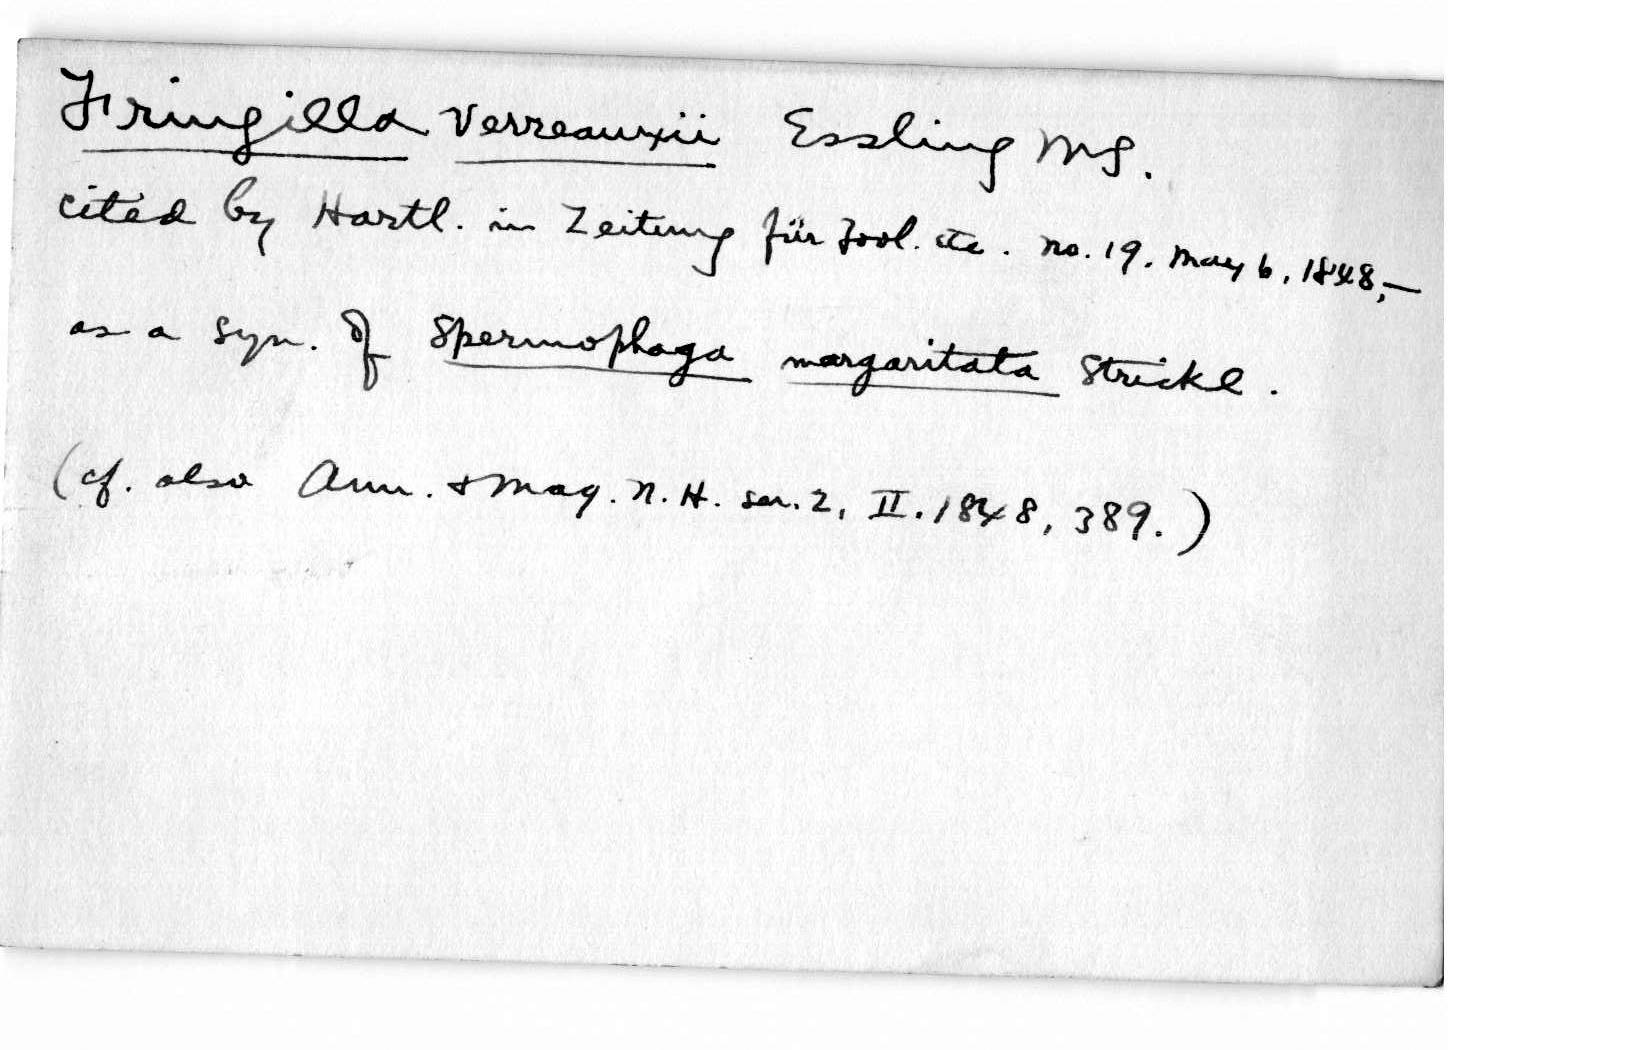 Fringilla Verreauxii Essling MS.
cited by Hartl. in Zeitung für Zool. etc. no. 19. May 6, 1848,—
as a syn. of Spermophaga margaritata Strickl.
(cf. also Ann. & Mag. N. H. ser. 2, II. 1848, 389.)